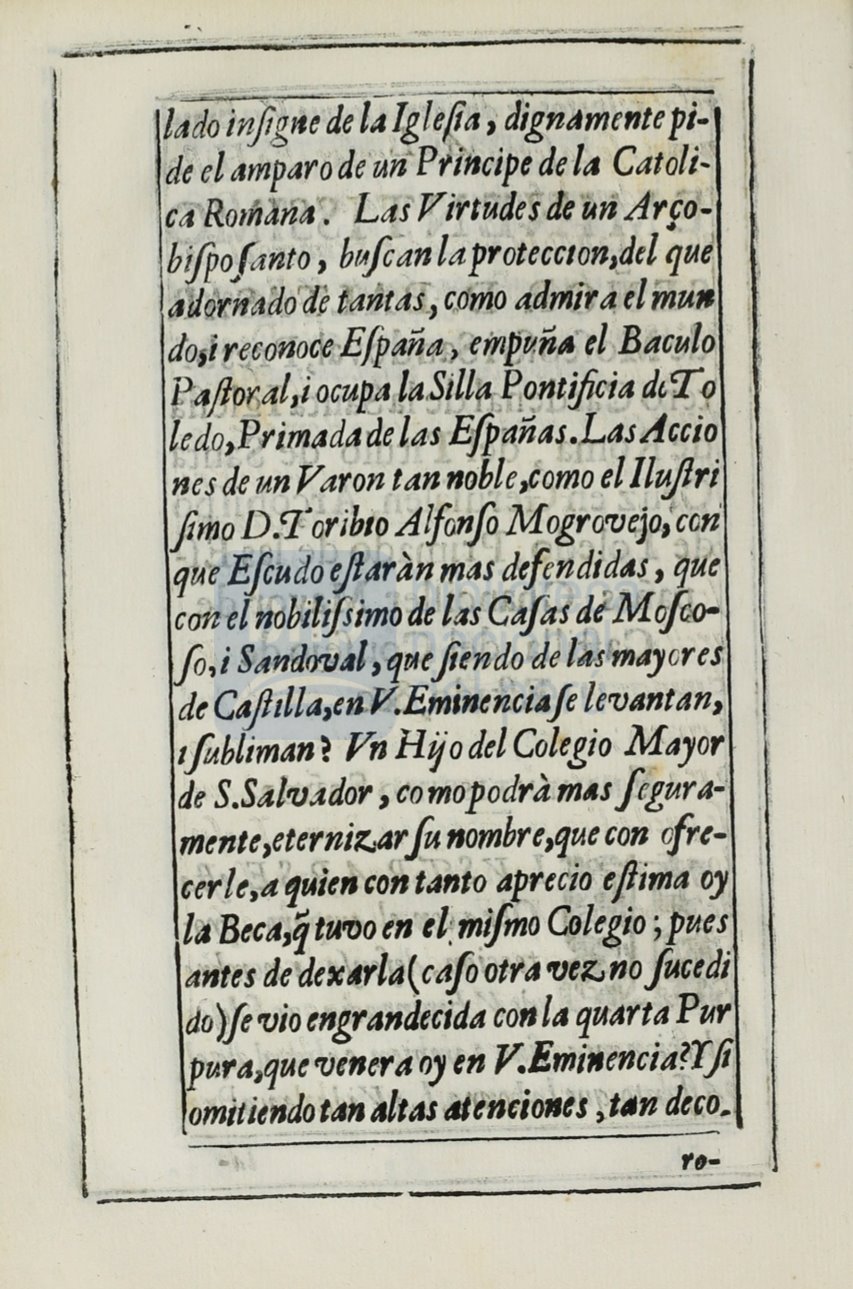 lado inſigne de la Igleſia, dignamente pi-
de el amparo de un Principe de la Catoli-
ca Romana. Las Virtudes de un Arço-
biſpo ſanto, buſcan la proteccion, del que
adornado de tantas, como admira el mun
do, i reconoce Eſpaña, empuña el Baculo
Paſtoral, i ocupa la Silla Pontificia de To
ledo, Primada de las Eſpañas. Las Accio
nes de un Varon tan noble, como el Iluſtri
ſimo D. Toribio Alfonſo Mogrovejo, con
que Eſcudo eſtaràn mas defendidas, que
con el nobiliſsimo de las Caſas de Moſco-
ſo, i Sandoval, que ſiendo de las mayores
de Caſtilla, en V. Eminencia ſe levantan,
i ſubliman? Vn Hijo del Colegio Mayor
de S. Salvador, como podrà mas ſegura-
mente, eternizar ſu nombre, que con ofre-
cerle, a quien con tanto aprecio eſtima oy
la Beca, q̃ tuvo en el miſmo Colegio; pues
antes de dexarla (caſo otra vez no ſucedi
do) ſe vio engrandecida con la quarta Pur
pura, que venera oy en V. Eminencia? Y ſi
omitiendo tan altas atenciones, tan deco-
ro-